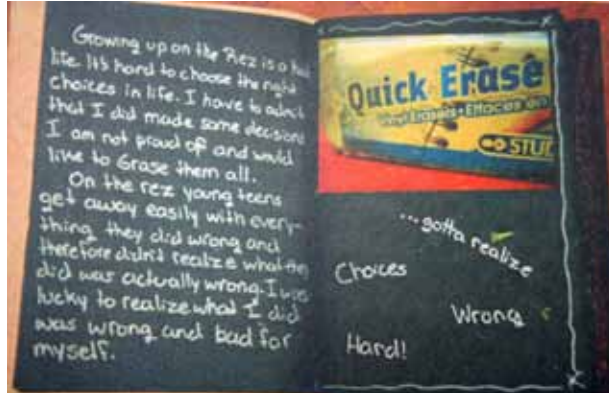 Growing up on the Rez is a hard
life. It's hard to choose the right
choices in life. I have to admit
that I did made some decisions
I am not proud of and would
like to Erase them all.
On the rez young teens
get away easily with every-
thing they did wrong and
therefore didn't realize what they
did was actually wrong. I was
lucky to realize what I did
was wrong and bad for
myself.
Quick Erase
Vinyl Erasers • Effaces en
STUD
...gotta realize
Choices
Wrong
Hard!